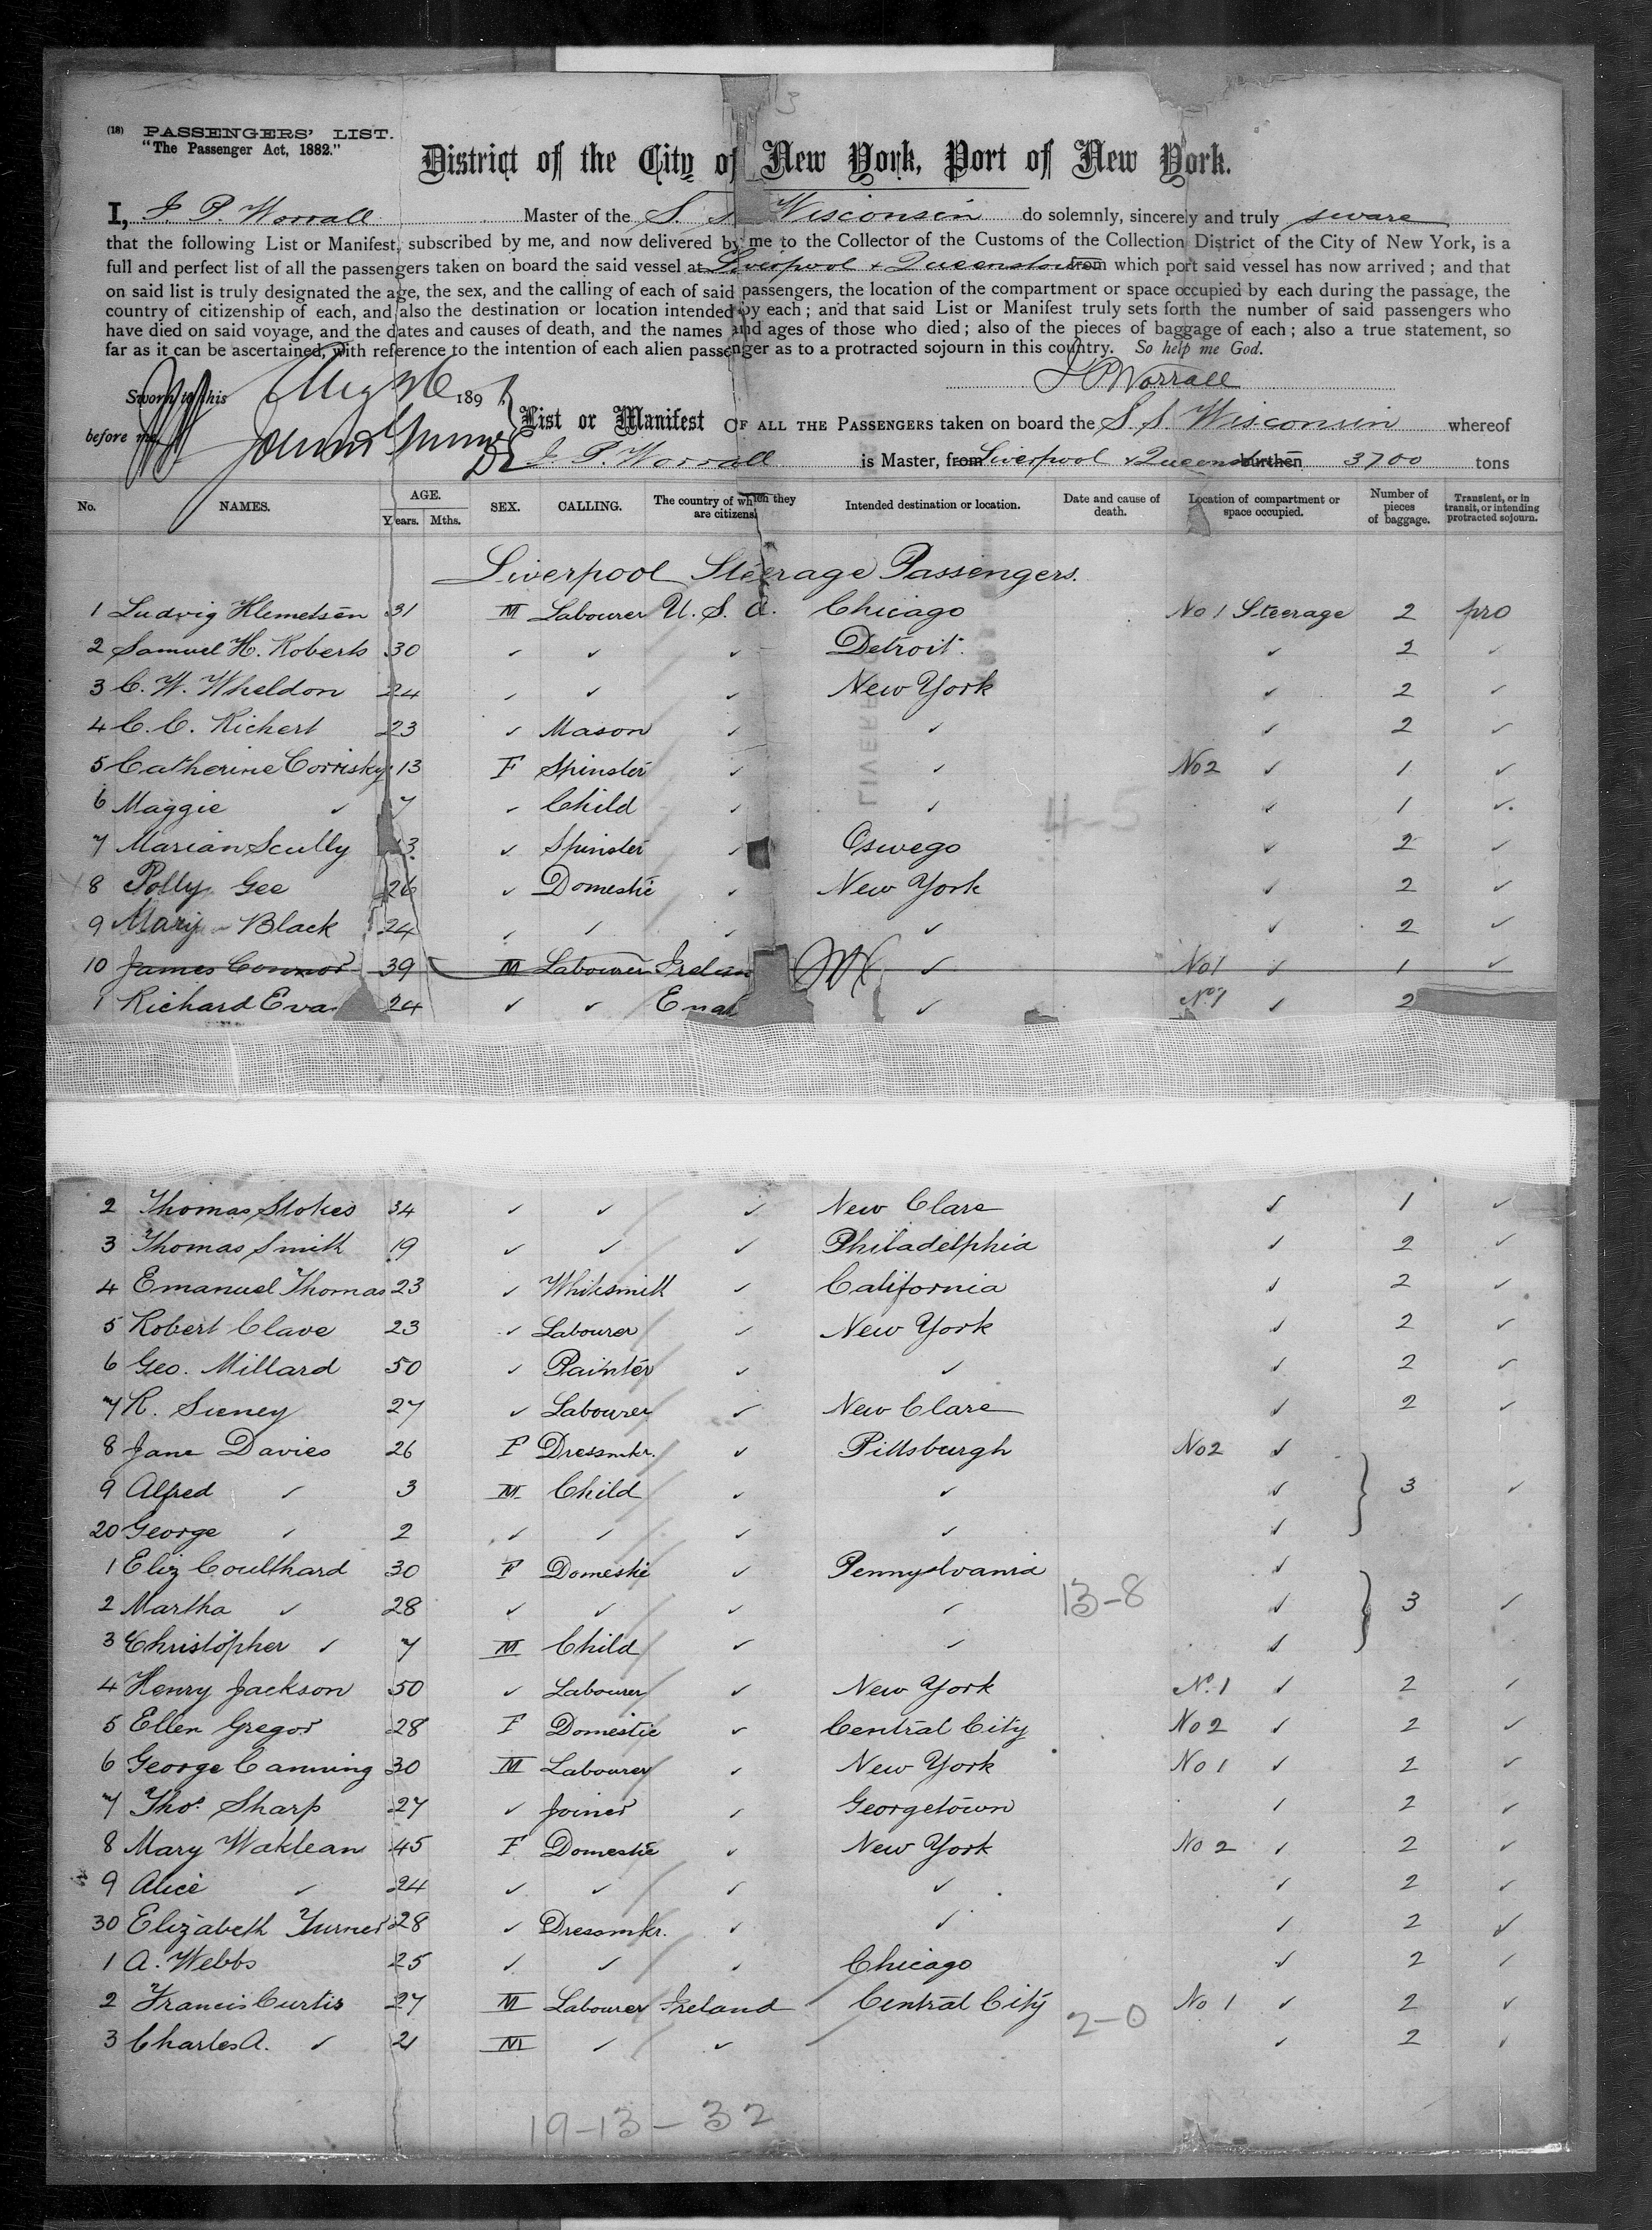 (18) PASSENGERS' LIST.
"The Passenger Act, 1882."
District of the City of New York, Port of New York.
I, J. P. Worrall Master of the S. S. Wisconsin do solemnly, sincerely and truly sware
that the following List or Manifest, subscribed by me, and now delivered by me to the Collector of the Customs of the Collection District of the City of New York, is a
full and perfect list of all the passengers taken on board the said vessel at Liverpool & Queenstown from which port said vessel has now arrived; and that
on said list is truly designated the age, the sex, and the calling of each of said passengers, the location of the compartment or space occupied by each during the passage, the
country of citizenship of each, and also the destination or location intended by each; and that said List or Manifest truly sets forth the number of said passengers who
have died on said voyage, and the dates and causes of death, and the names and ages of those who died; also of the pieces of baggage of each; also a true statement, so
far as it can be ascertained, with reference to the intention of each alien passenger as to a protracted sojourn in this country. So help me God.
J P Worrall
Sworn to this Aug 189
before me
List or Manifest OF ALL THE PASSENGERS taken on board the S. S. Wisconsin whereof
J. P. Worrall is Master, from Liverpool & Queens burthen 3700 tons
No. NAMES. AGE. Years. Mths. SEX. CALLING. The country of which they are citizens. Intended destination or location. Date and cause of death. Location of compartment or space occupied. Number of pieces of baggage. Transient, or in transit, or intending protracted sojourn.
Liverpool Steerage Passengers.
1 Ludvig Klemetsen 31 M Labourer U. S. A. Chicago No 1 Steerage 2 pro
2 Samuel H. Roberts 30 ✓ ✓ ✓ Detroit ✓ 2 ✓
3 C. W. Wheldon 24 ✓ ✓ ✓ New York ✓ 2 ✓
4 C. C. Richert 23 ✓ Mason ✓ ✓ ✓ 2 ✓
5 Catherine Corrisky 13 F Spinster ✓ ✓ No 2 ✓ 1 ✓
6 Maggie ✓ 7 ✓ Child ✓ ✓ ✓ 1 ✓
7 Marian Scully 13 ✓ Spinster ✓ Oswego ✓ 2 ✓
8 Polly Gee 26 ✓ Domestic ✓ New York ✓ 2 ✓
9 Mary Black 24 ✓ ✓ ✓ ✓ ✓ 2 ✓
10 James Connor 39 M Labourer Irelan ✓ No 1 ✓ 1 ✓
1 Richard Eva 24 ✓ ✓ Eng ✓ No 1 ✓ 2
2 Thomas Stokes 34 ✓ ✓ ✓ New Clare ✓ 1 ✓
3 Thomas Smith 19 ✓ ✓ ✓ Philadelphia ✓ 2 ✓
4 Emanuel Thomas 23 ✓ Whitesmith ✓ California ✓ 2 ✓
5 Robert Clave 23 ✓ Labourer ✓ New York ✓ 2 ✓
6 Geo. Millard 50 ✓ Painter ✓ ✓ ✓ 2 ✓
7 R. Sieney 27 ✓ Labourer ✓ New Clare ✓ 2 ✓
8 Jane Davies 26 F Dressmkr. ✓ Pittsburgh No 2 ✓
9 Alfred ✓ 3 M Child ✓ ✓ ✓ 3 ✓
20 George ✓ 2 ✓ ✓ ✓ ✓ ✓
1 Eliz Coulthard 30 F Domestic ✓ Pennyslvania ✓
2 Martha ✓ 28 ✓ ✓ ✓ ✓ 13-8 ✓ 3 ✓
3 Christopher ✓ 7 M Child ✓ ✓ ✓
4 Henry Jackson 50 ✓ Labourer ✓ New York No. 1 ✓ 2 ✓
5 Ellen Gregor 28 F Domestic ✓ Central City No 2 ✓ 2 ✓
6 George Canning 30 M Labourer ✓ New York No 1 ✓ 2 ✓
7 Thos. Sharp 27 ✓ Joiner ✓ Georgetown ✓ 2 ✓
8 Mary Waklean 45 F Domestic ✓ New York No 2 ✓ 2 ✓
9 Alice ✓ 24 ✓ ✓ ✓ ✓ ✓ 2 ✓
30 Elizabeth Turner 28 ✓ Dressmkr. ✓ ✓ ✓ 2 ✓
1 A. Webbs 25 ✓ ✓ ✓ Chicago ✓ 2 ✓
2 Francis Curtis 27 M Labourer Ireland Central City No 1 ✓ 2 ✓
3 Charles A. ✓ 21 M ✓ ✓ 2-0 ✓ 2 ✓
19-13-32